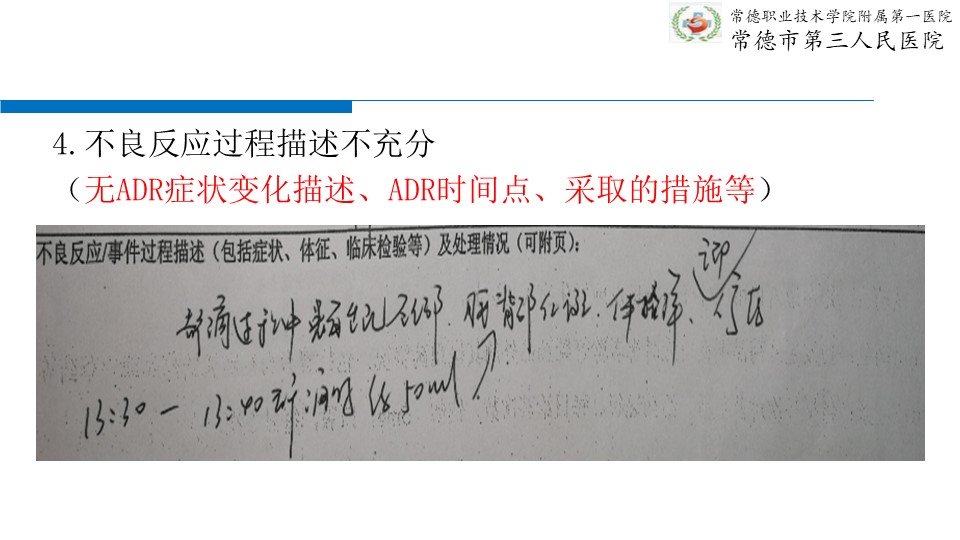 常德职业技术学院附属第一医院
常德市第三人民医院
4.不良反应过程描述不充分
（无ADR症状变化描述、ADR时间点、采取的措施等）
不良反应/事件过程描述（包括症状、体征、临床检验等）及处理情况（可附页）：
滴过程中患者出现 胸背部红斑、伴瘙痒、
13:30 — 13:40 50ml